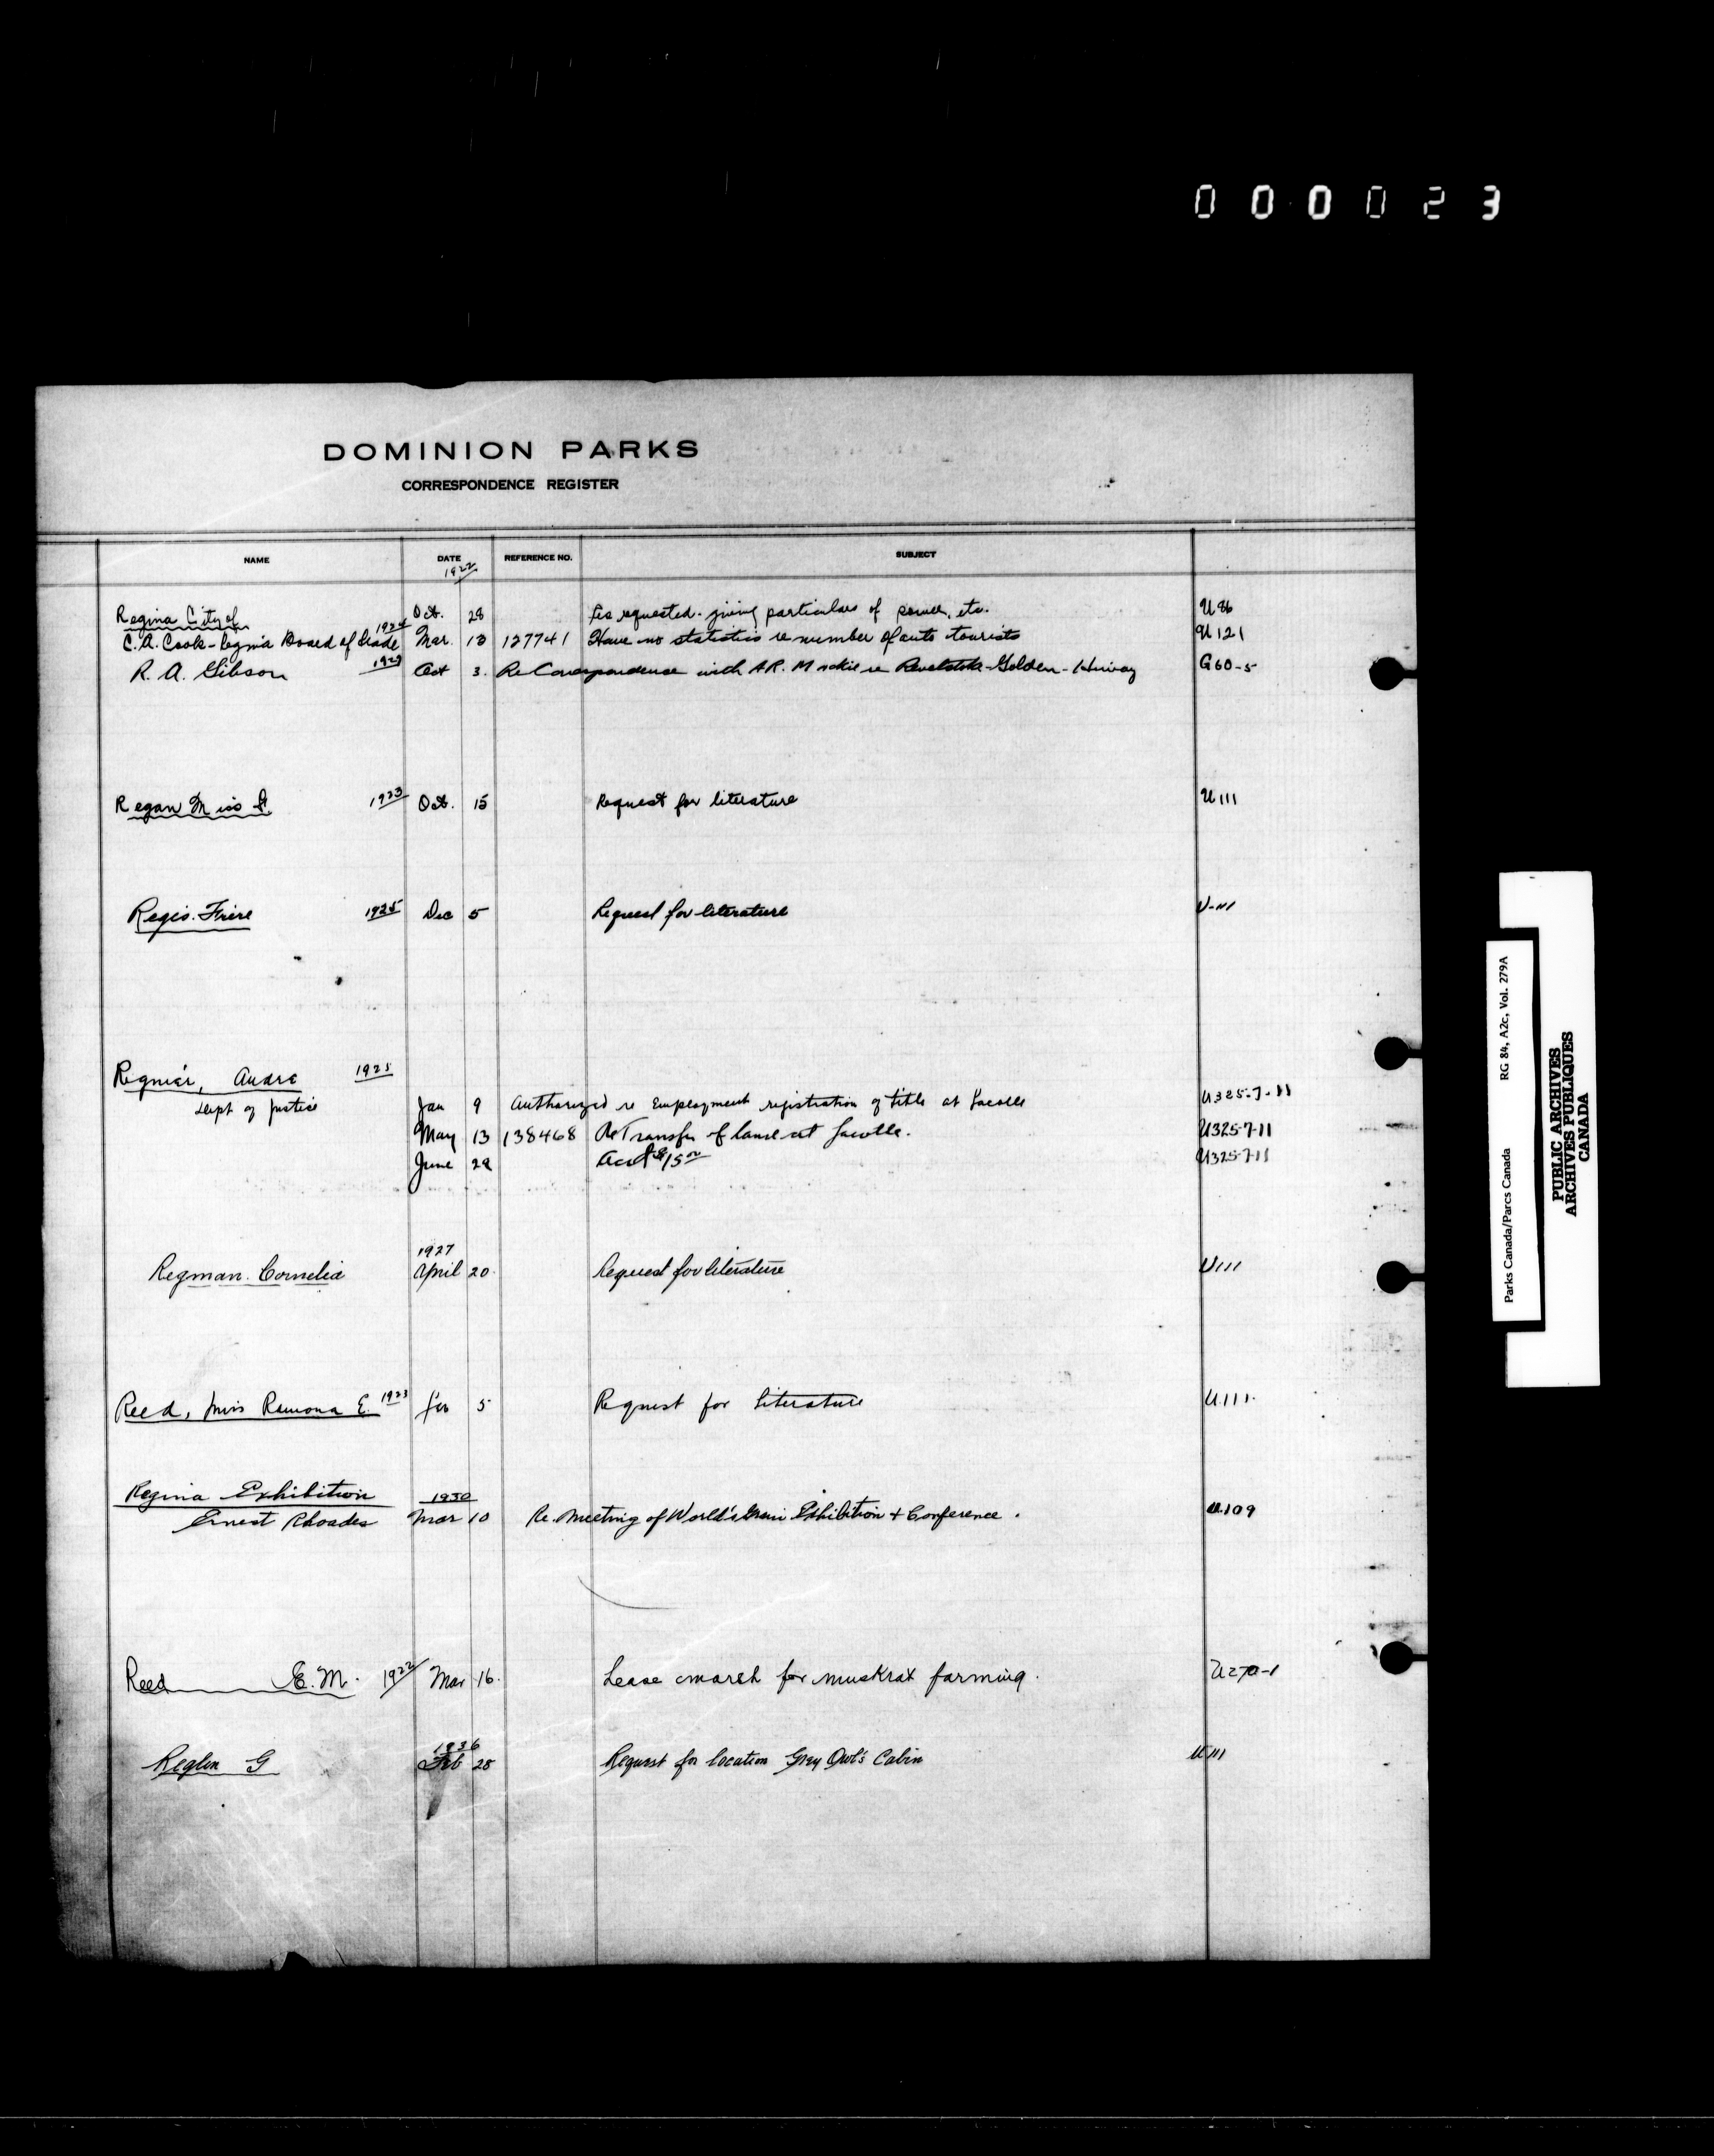 000023
DOMINION PARKS
CORRESPONDENCE REGISTER
NAME DATE REFERENCE NO. SUBJECT
1922
Regina City of Oct. 28 As requested. giving particulars of power, etc. U 86
C.A. Cook - Regina Board of Trade 1924 Mar. 13 127741 Have no statistics re number of auto tourists U 121
R. A. Gibson 1929 Oct 3. Re Correspondence with A.R. M Revelstoke-Golden-Hiway G60-5
Regan Miss 1923 Oct. 15 Request for literature U 111
Regis. Frère 1925 Dec 5 Request for literature U-111
Regnier, Andre 1925
Dept of Justice Jan 9 Authorized re Employment registration of title at Lacolle U325-7-11
May 13 138468 Re Transfer of land at Lacolle. U325-7-11
June 29 Acct $15.00 U325-7-11
1927
Regman. Cornelia April 20. Request for literature U111
Reed, Miss Ramona E. 1923 5 Request for Literature U.111.
Regina Exhibition 1930
Ernest Rhoades Mar 10 Re. Meeting of World's Grain Exhibition & Conference. U.109
Reed E.M. 1922 Mar 16. Lease marsh for muskrat farming. U270-1
1936
Reglon G Feb 28 Request for location Grey Owl's Cabin U111
Parks Canada/Parcs Canada RG 84, A2c, Vol. 279A
PUBLIC ARCHIVES
ARCHIVES PUBLIQUES
CANADA